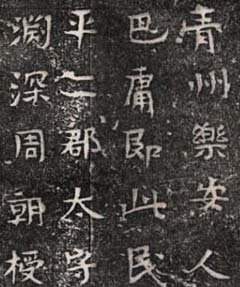 青州樂安人
巴庸即此民
平二郡太守
渊深周朝授